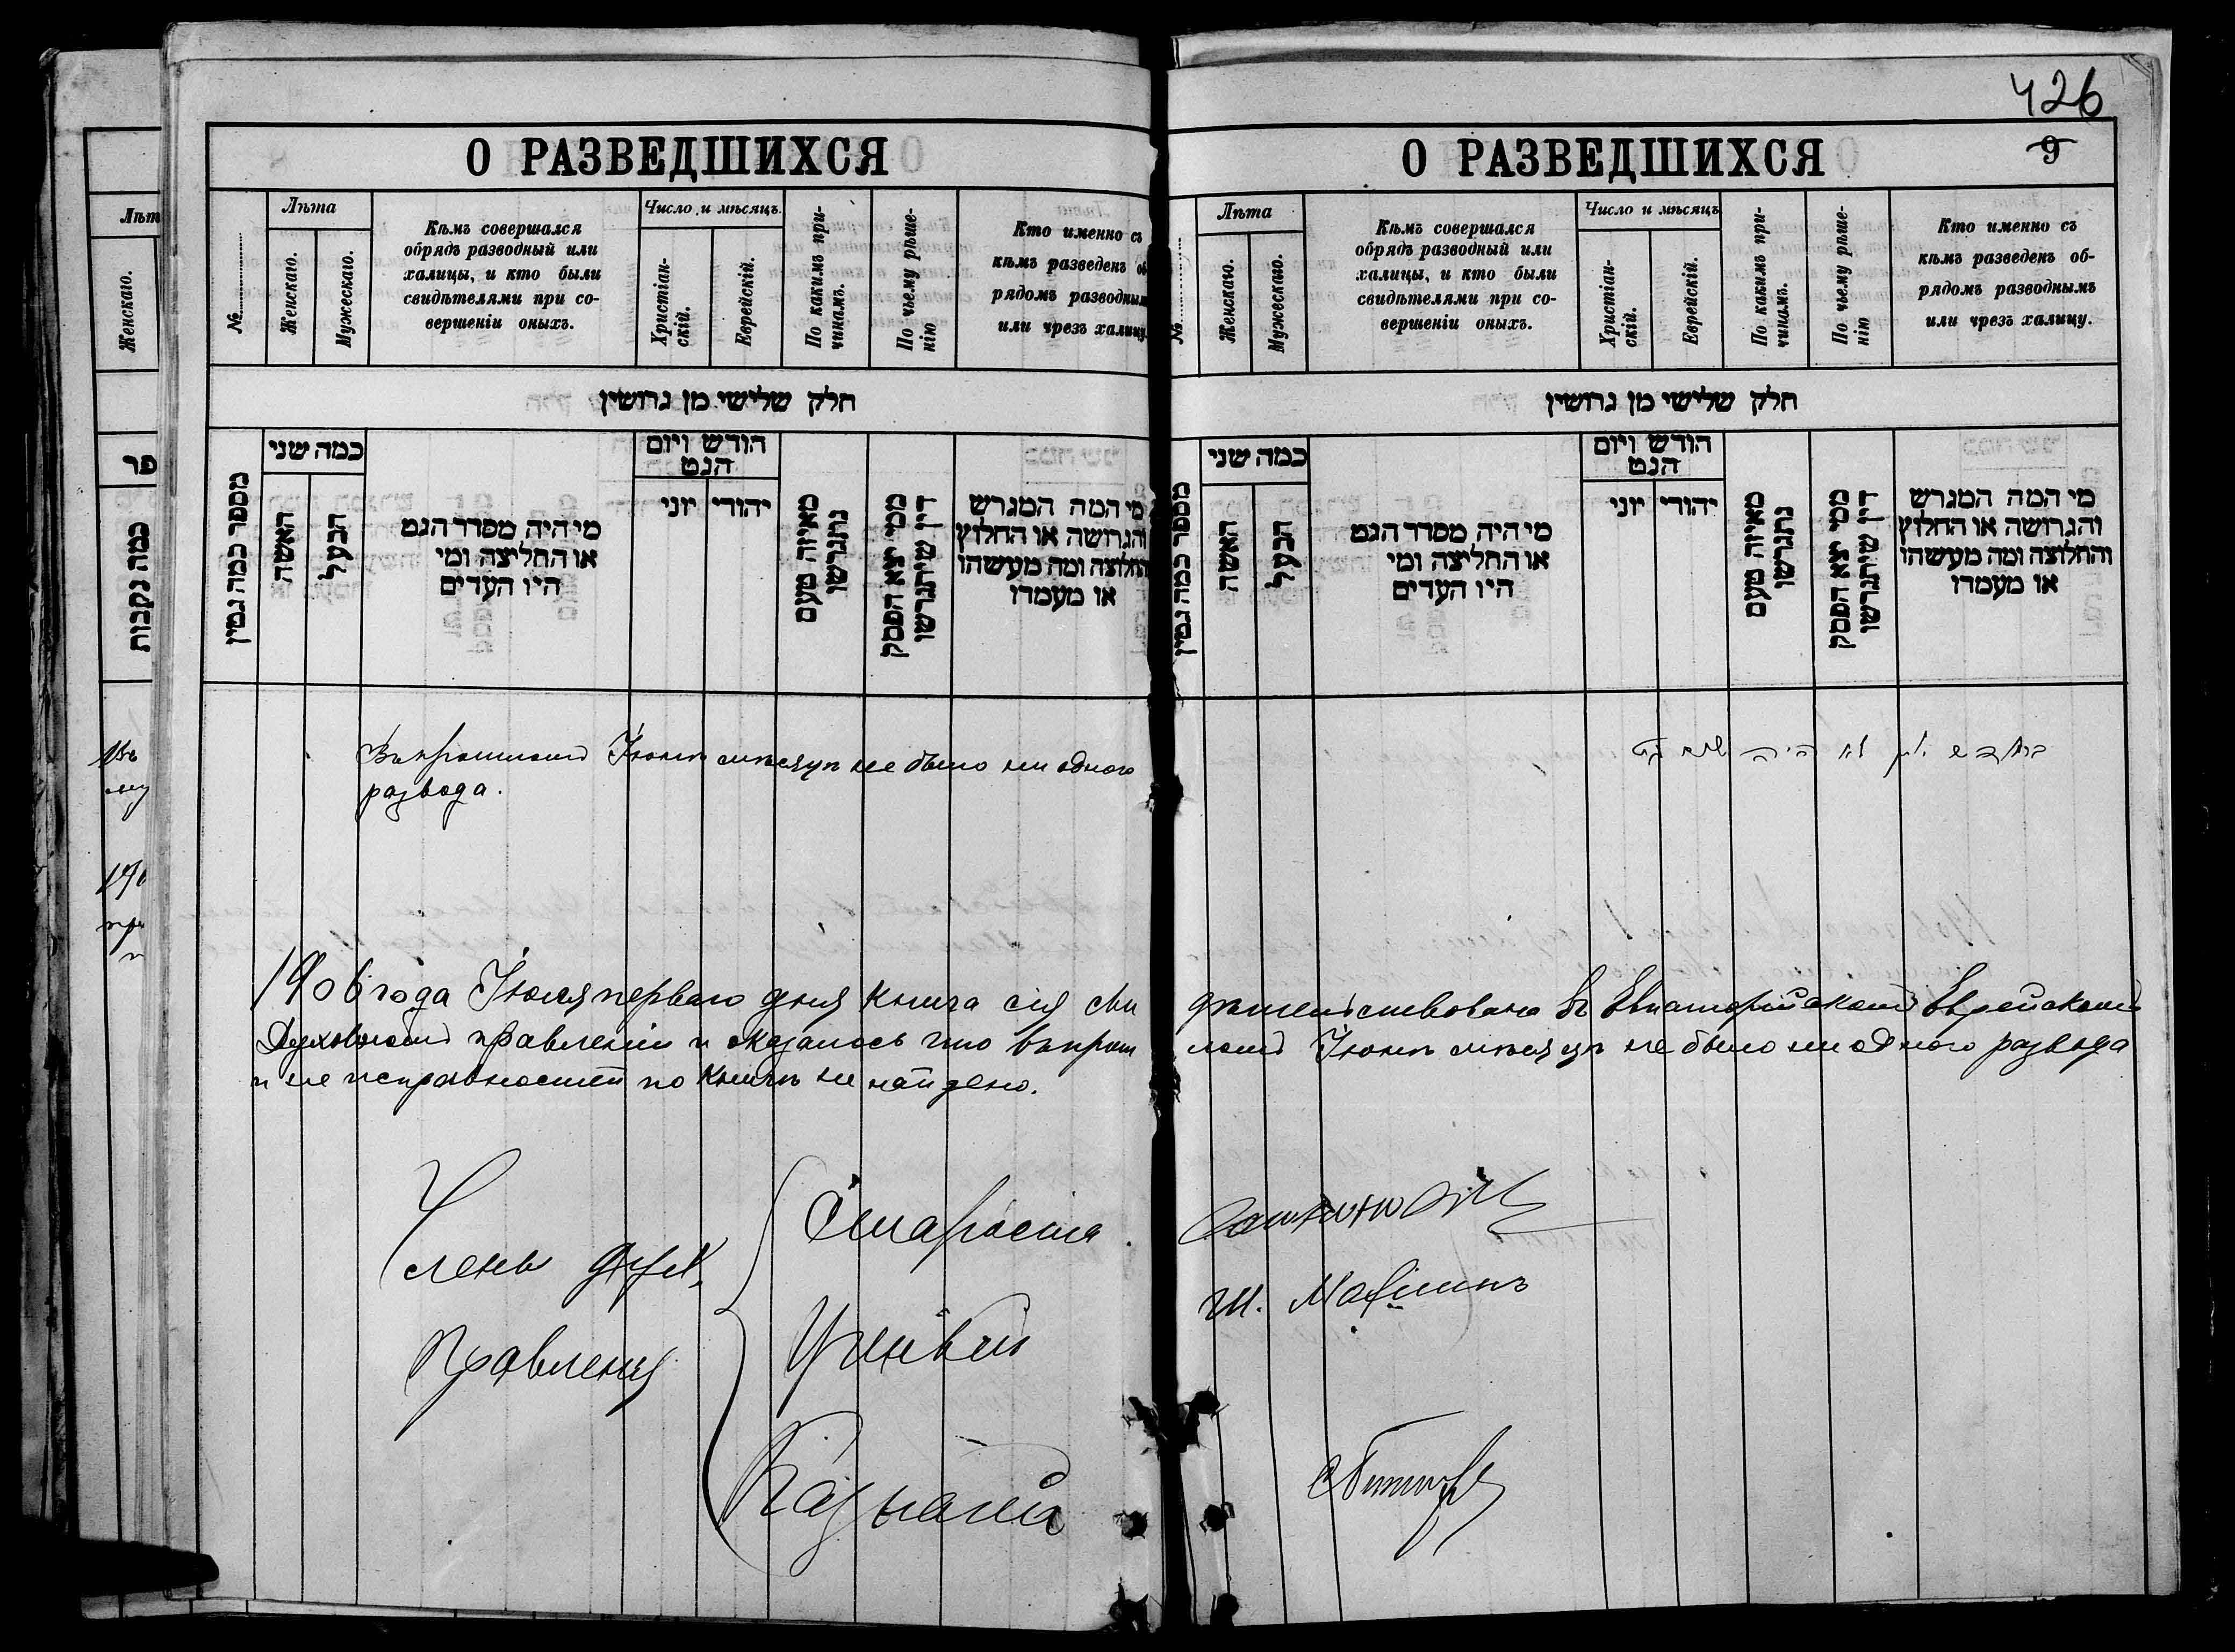 426
О РАЗВЕДШИХСЯ
№
Лѣта
Женскаго.
Мужескаго.
Кѣмъ совершался
обрядъ разводный или
халицы, и кто были
свидѣтелями при со-
вершеніи оныхъ.
Число и мѣсяцъ.
Христіан-
скій.
Еврейскій.
По какимъ при-
чинамъ.
По чьему рѣше-
нію
Кто именно съ
кѣмъ разведенъ об
рядомъ разводным
или чрезъ халицу
חלק שלישי מן גרושין
מספר כמה גטין
כמה שני
האשה
הבעל
מי היה מסדר הגט
או החליצה ומי
היו העדים
חודש ויום
הגט
יהודי
יוני
מאיזה טעם
נתגרשו
ממי יצא הפסק
דין שיתגרשו
מי המה המגרש
והגרושה או החלוץ
והחלוצה ומה מעשהו
או מעמדו
О РАЗВЕДШИХСЯ
9
№
Лѣта
Женскаго.
Мужескаго.
Кѣмъ совершался
обрядъ разводный или
халицы, и кто были
свидѣтелями при со-
вершеніи оныхъ.
Число и мѣсяцъ
Христіан-
скій.
Еврейскій.
По какимъ при-
чинамъ.
По чьему рѣше-
нію
Кто именно съ
кѣмъ разведенъ об-
рядомъ разводнымъ
или чрезъ халицу.
חלק שלישי מן גרושין
מספר כמה גטין
כמה שני
האשה
הבעל
מי היה מסדר הגט
או החליצה ומי
היו העדים
חודש ויום
הגט
יהודי
יוני
מאיזה טעם
נתגרשו
ממי יצא הפסק
דין שיתגרשו
מי המה המגרש
והגרושה או החלוץ
והחלוצה ומה מעשהו
או מעמדו
Въ прошломъ Іюнѣ мѣсяцѣ не было ни одного
развода.
בחדש יוני לא היה שום גט
1906 года Іюля перваго дня книга сія сви дѣтельствована въ Евпаторійскомъ Еврейскомъ
Духовномъ правленіи и оказалось что въ прош ломъ Іюнѣ мѣсяцѣ не было ни одного развода
и не исправностей по книгѣ не найдено.
Члены дух.
Правленія
Староста
Ученый
Казначей
Ш.
Женскаго.
כמה נקבות